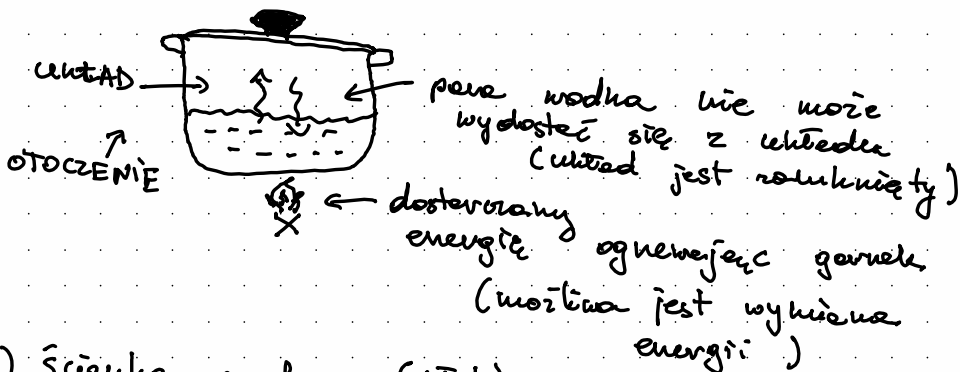 UKŁAD
OTOCZENIE
para wodna nie może
wydostać się z układu
(układ jest zamknięty)
dostarczamy
energię ogrzewając garnek
(możliwa jest wymiana
energii)
) Ścianka